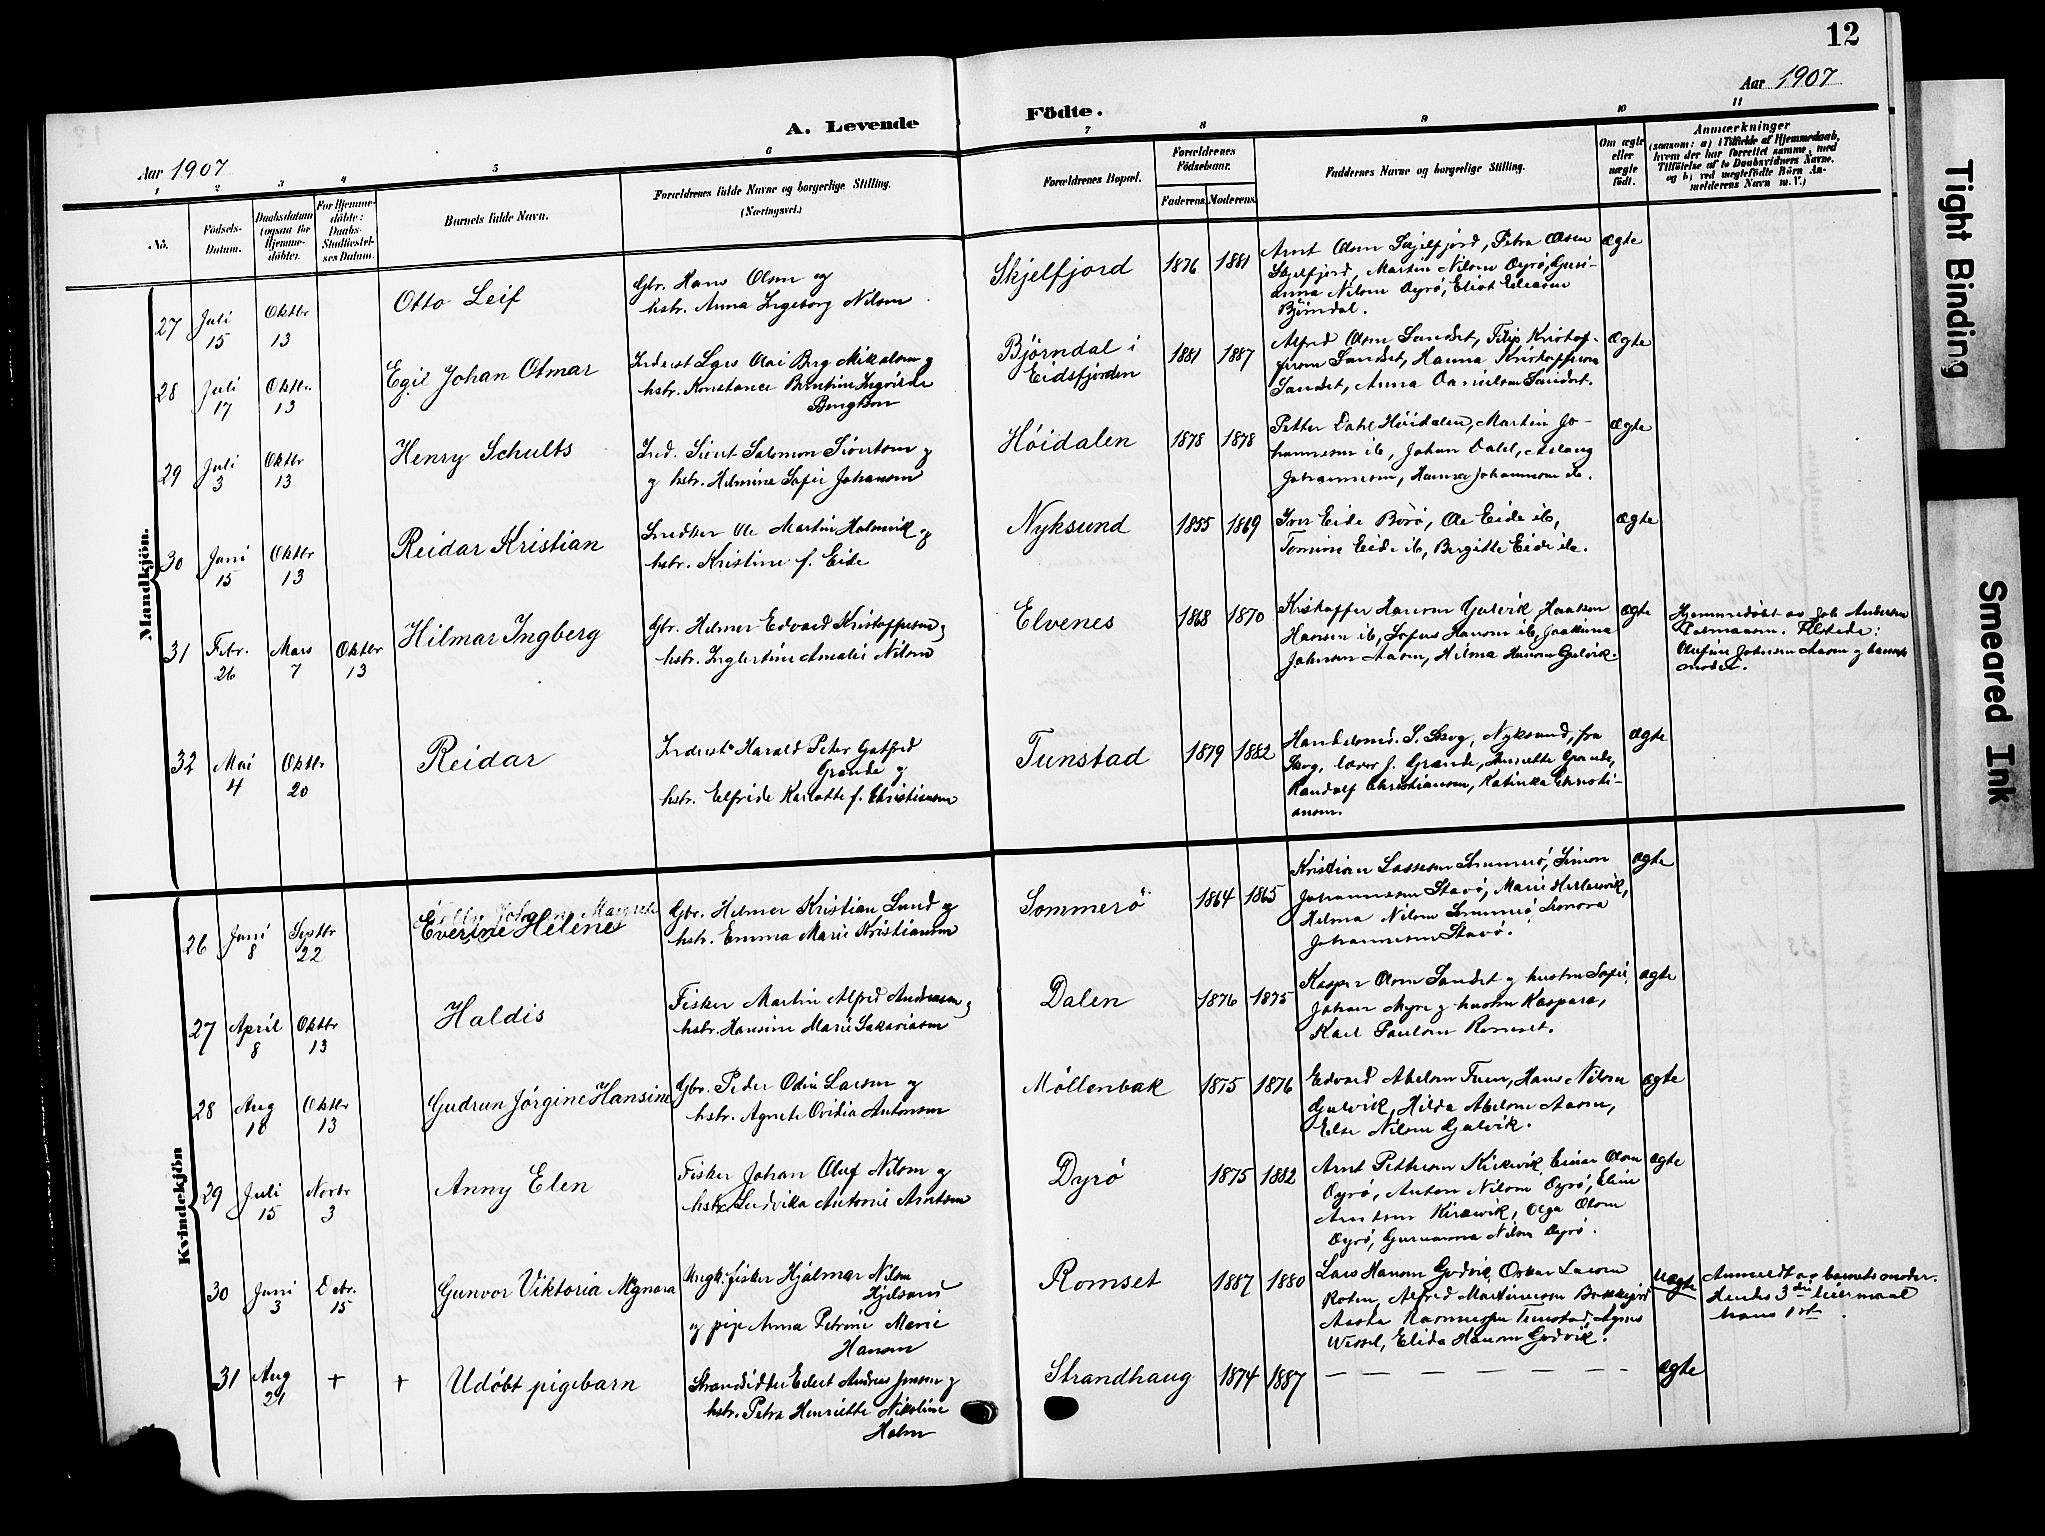 12
Aar 1907
A. Levende Födte.
Aar 1907
1 2 3 4 5 6 7 8 9 10 11
No.
Födsels-
Datum.
Daabsdatum
(ogsaa för
Hjemme-
döbte).
For Hjemme-
döbte:
Daabs-
Stadfæstel-
ses Datum.
Barnets fulde Navn.
Forældrenes fulde Navne og borgerlige Stilling.
(Næringsvei.)
Forældrenes Bopæl.
Forældrenes
Födselsaar.
Faderens. Moderens.
Faddernes Navne og borgerlige Stilling.
Om ægte
eller
uægte
født.
Anmærkninger
(saasom: a) i Tilfælde af Hjemmedaab,
hvem der har forrettet samme, med
Tilföielse af to Daabsvidners Navne.
og b) ved uægtefödte Börn An-
melderens Navn m. V.)
Mandkjön.
27 Juli 15 Oktbr 13 Otto Leif
Gbr. Hans Olsen og
hstr. Anna Ingeborg Nilsen
Skjelfjord 1876 1881
Arnt Olsen Skjelfjord, Petra Olsen
Skjelfjord, Martin Nilsen Dyrö,
Nilsen Dyrö,
Björndal.
Ægte
28 Juli 17 Oktbr. 13 Egil Johan Otmar
Inderst Lars Olai Berg Mikalsen og
hstr. Konstance Berntine Ingvilda
Bengtson
Björndal i
Eidsfjorden
1881 1887
Alfred Olsen Sandset, Filip Kristof-
fersen Sandset, Hanna Kristoffersen
Sandset, Anna Danielsen Sandset.
Ægte
29 Juli 3 Oktbr 13 Henry Schults
Ind. Sivert Salomon Sivertsen og
og hstr. Helmine Sofie Johansen
Höidalen 1878 1878
Petter Dahl Höidalen, Martin Jo-
hannesen ib, Johan Dahl, Aslaug
Johannesen, Hanna Johannesen ib.
Ægte
30 Juni 15 Oktbr 13 Reidar Kristian
Snedker Ole Martin Holmvik og
hstr. Kristine f. Eide
Nyksund 1855 1869
Iver Eide Börö, Ole Eide ib,
Tomine Eide ib, Bergitte Eide ib.
Ægte
31 Febr. 26 Mars 7 Oktbr 13 Hilmar Ingberg
Gbr. Helmer Edvard Kristoffersen og
hstr. Inglertine Amalie Nilsen
Elvenes 1868 1870
Kristoffer Hansen Gulvik,
Hansen ib, Sofus Hansen ib, Joakima
Johnsen Aasen, Hilma Hansen Gulvik.
Ægte
Hjemmedöbt av Job Andersen
Tilstede:
Olufine Johnsen Aasen og barnets
moder.
32 Mai 4 Oktbr 20 Reidar
Inderst Harald Peter Gotfred
Grande og
hstr. Elfride Karlotte f. Christiansen
Tunstad 1879 1882
Handelsmd. S. Skog, Nyksund, fru
Skog, lærer J. Grande, Henriette Grande,
Randolf Christiansen, Katinka Christi-
ansen.
Ægte
Kvindekjön
26 Juni 8 Septbr 22 Everine Helene
Gbr. Helmer Kristian Lund og
hstr. Emma Marie Kristiansen
Sommerö 1864 1865
Kristian Lassesen Sommerö, Simon
Johannesen Stavö, Marie
Helma Nilsen Sommerö, Leonora
Johannesen Stavö.
Ægte
27 April 8 Oktbr 13 Haldis
Fisker Martin Alfred Andreasen og
hstr. Hansine Marie Sakariasen
Dalen 1876 1875
Kasper Olsen Sandset og hustru Sofie,
Johan Myre og hustru Kaspara,
Karl Paulsen Romset.
Ægte
28 Aug 18 Oktbr 13 Gudrun Jørgine Hansine
Gbr. Peder Odin Larsen og
hstr. Agnete Ovidia Antonsen
Möllenbak 1875 1876
Edvard Abelsen Tuen, Hans Nilsen
Gulvik, Hilda Abelsen Aasen,
Else Nilsen Gulvik.
Ægte
29 Juli 15 Novbr 3 Anny Elen
Fisker Johan Oluf Nilsen og
hstr. Ludvika Antonie Arntsen
Dyrö 1875 1882
Arnt Pettersen Kirkvik, Einar Olsen
Dyrö, Anton Nilsen Dyrö, Eline
Arntsen Kirkvik, Olga Olsen
Dyrö, Nilsen Dyrö.
Ægte
30 Juni 3 Debr. 15 Gunvor Viktoria Magnora
Ungk. fisker Hjalmar Nilsen
og pige Anna Petrine Marie
Hansen
Romset 1887 1880
Lars Hansen Godvik, Oskar Larsen
Roten, Alfred Martinussen
Aasta Rasmussen Tunstad, Agnes
Wessel, Elida Hansen Godvik.
Uægte
Anmeldt av barnets moder.
Hendes 3die leiermaal
hans 1ste.
31 Aug 21 + + Udöbt pigebarn
Strandsidder Edert Andreas Jensen og
hstr. Petra Henriette Nikoline
Holm
Strandhaug 1874 1887 — — — — — —
Ægte
Tight Binding
Smeared Ink